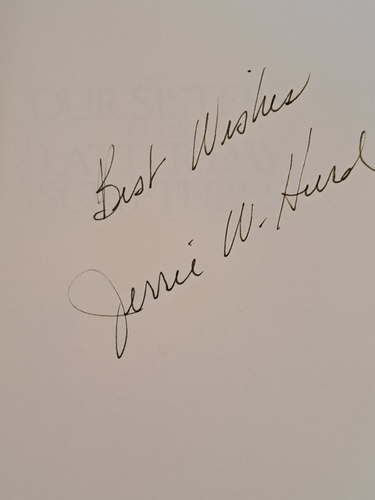 Best Wishes
Jerrie W. Hurd